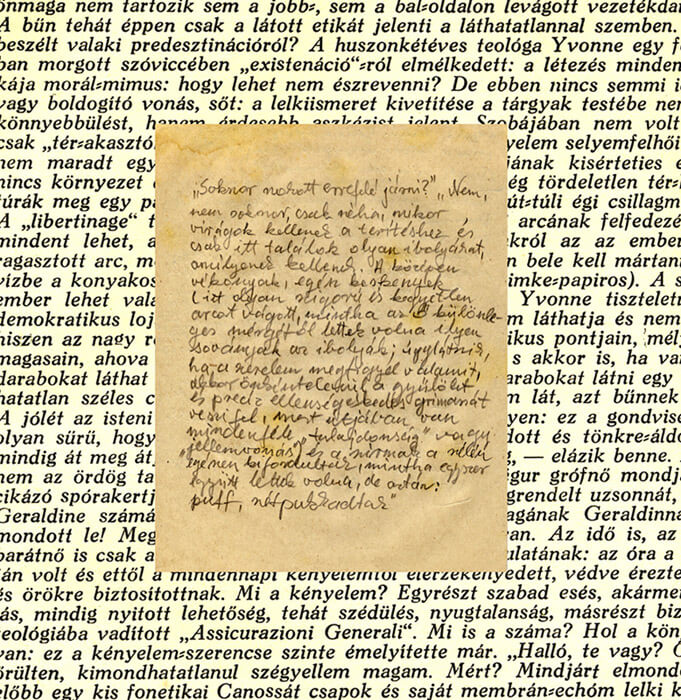 önmaga nem tartozik sem a jobb=, sem a bal=oldalon levágott vezetékdar
A bűn tehát éppen csak a látott etikát jelenti a láthatatlannal szemben.
beszélt valaki predesztinációról? A huszonkétéves teológa Yvonne egy f
ban morgott szóviccében „existenáció“=ról elmélkedett: a létezés minden
kája morál=mimus: hogy lehet nem észrevenni? De ebben nincs semmi i
vagy boldogító vonás, sőt: a lelkiismeret kivetítése a tárgyak testébe nem
könnyebbülést, hanem érdesebb aszkézist jelent. Szobájában nem volt
csak „tér=akasztó yelem selyemfelhői
nem maradt egy jának kísérteties e
nincs környezet ég tördeletlen tér=
túrák meg egy pa út=túli égi csillagm
A „libertinage“ t arcának felfedezé
mindent lehet, a król az az ember
ragasztott arc, m bele kell mártan
vízbe a konyakos imke=papiros). A s
ember lehet vala Yvonne tisztelet
demokratikus loj m láthatja és nem
hiszen az nagy r ikus pontjain, mély
magasain, ahova s akkor is, ha va
darabokat láthat arabokat látni egy
hatatlan széles c m lát, azt bűnnek
A jólét az isteni yen: ez a gondvise
olyan sürű, hogy dott és tönkre=áldo
mindig át meg át , — elázik benne.
nem az ördög ta gur grófnő mondj
cikázó spórakertj grendelt uzsonnát,
Geraldine számá agának Geraldinna
mondott le! Meg an. Az idő is, az
barátnő is csak a ulatának: az óra a
ján volt és ettől a mindennapi kényelemtől elérzékenyedett, védve érezte
és örökre biztosítottnak. Mi a kényelem? Egyrészt szabad esés, akárme
ás, mindig nyitott lehetőség, tehát szédülés, nyugtalanság, másrészt biz
teológiába vadított „Assicurazioni Generali“. Mi is a száma? Hol a kön
van: ez a kényelem=szerencse szinte émelyítette már. „Halló, te vagy?
őrülten, kimondhatatlanul szégyellem magam. Mért? Mindjárt elmondo
előbb egy kis fonetikai Canossát csapok és saját membrán=echóm lelki
„Sokszor szokott errefelé járni?“ „Nem,
nem sokszor, csak néha, mikor
virágok kellenek a terítéshez és
csak itt találok olyan ibolyákat,
amilyenek kellenek. A középen
vékonyak, egész keskenyek
(itt olyan szigorú és kegyetlen
arcot vágott, mintha az ő különle-
ges mérgétől lettek volna ilyen
soványak az ibolyák; úgylátszik,
ha a szerelem megfogyel valamit,
akkor önkéntelenül a gyűlölet
és precíz ellenségeskedés grimaszát
veszi fel, mert útjában van
mindenféle „tulajdonság“ vagy
„jellemvonás“) és a szirmaik a szélén
egészen kifordultak, mintha egyszer
együtt lettek volna, de aztán:
puff, szétpukkadtak“